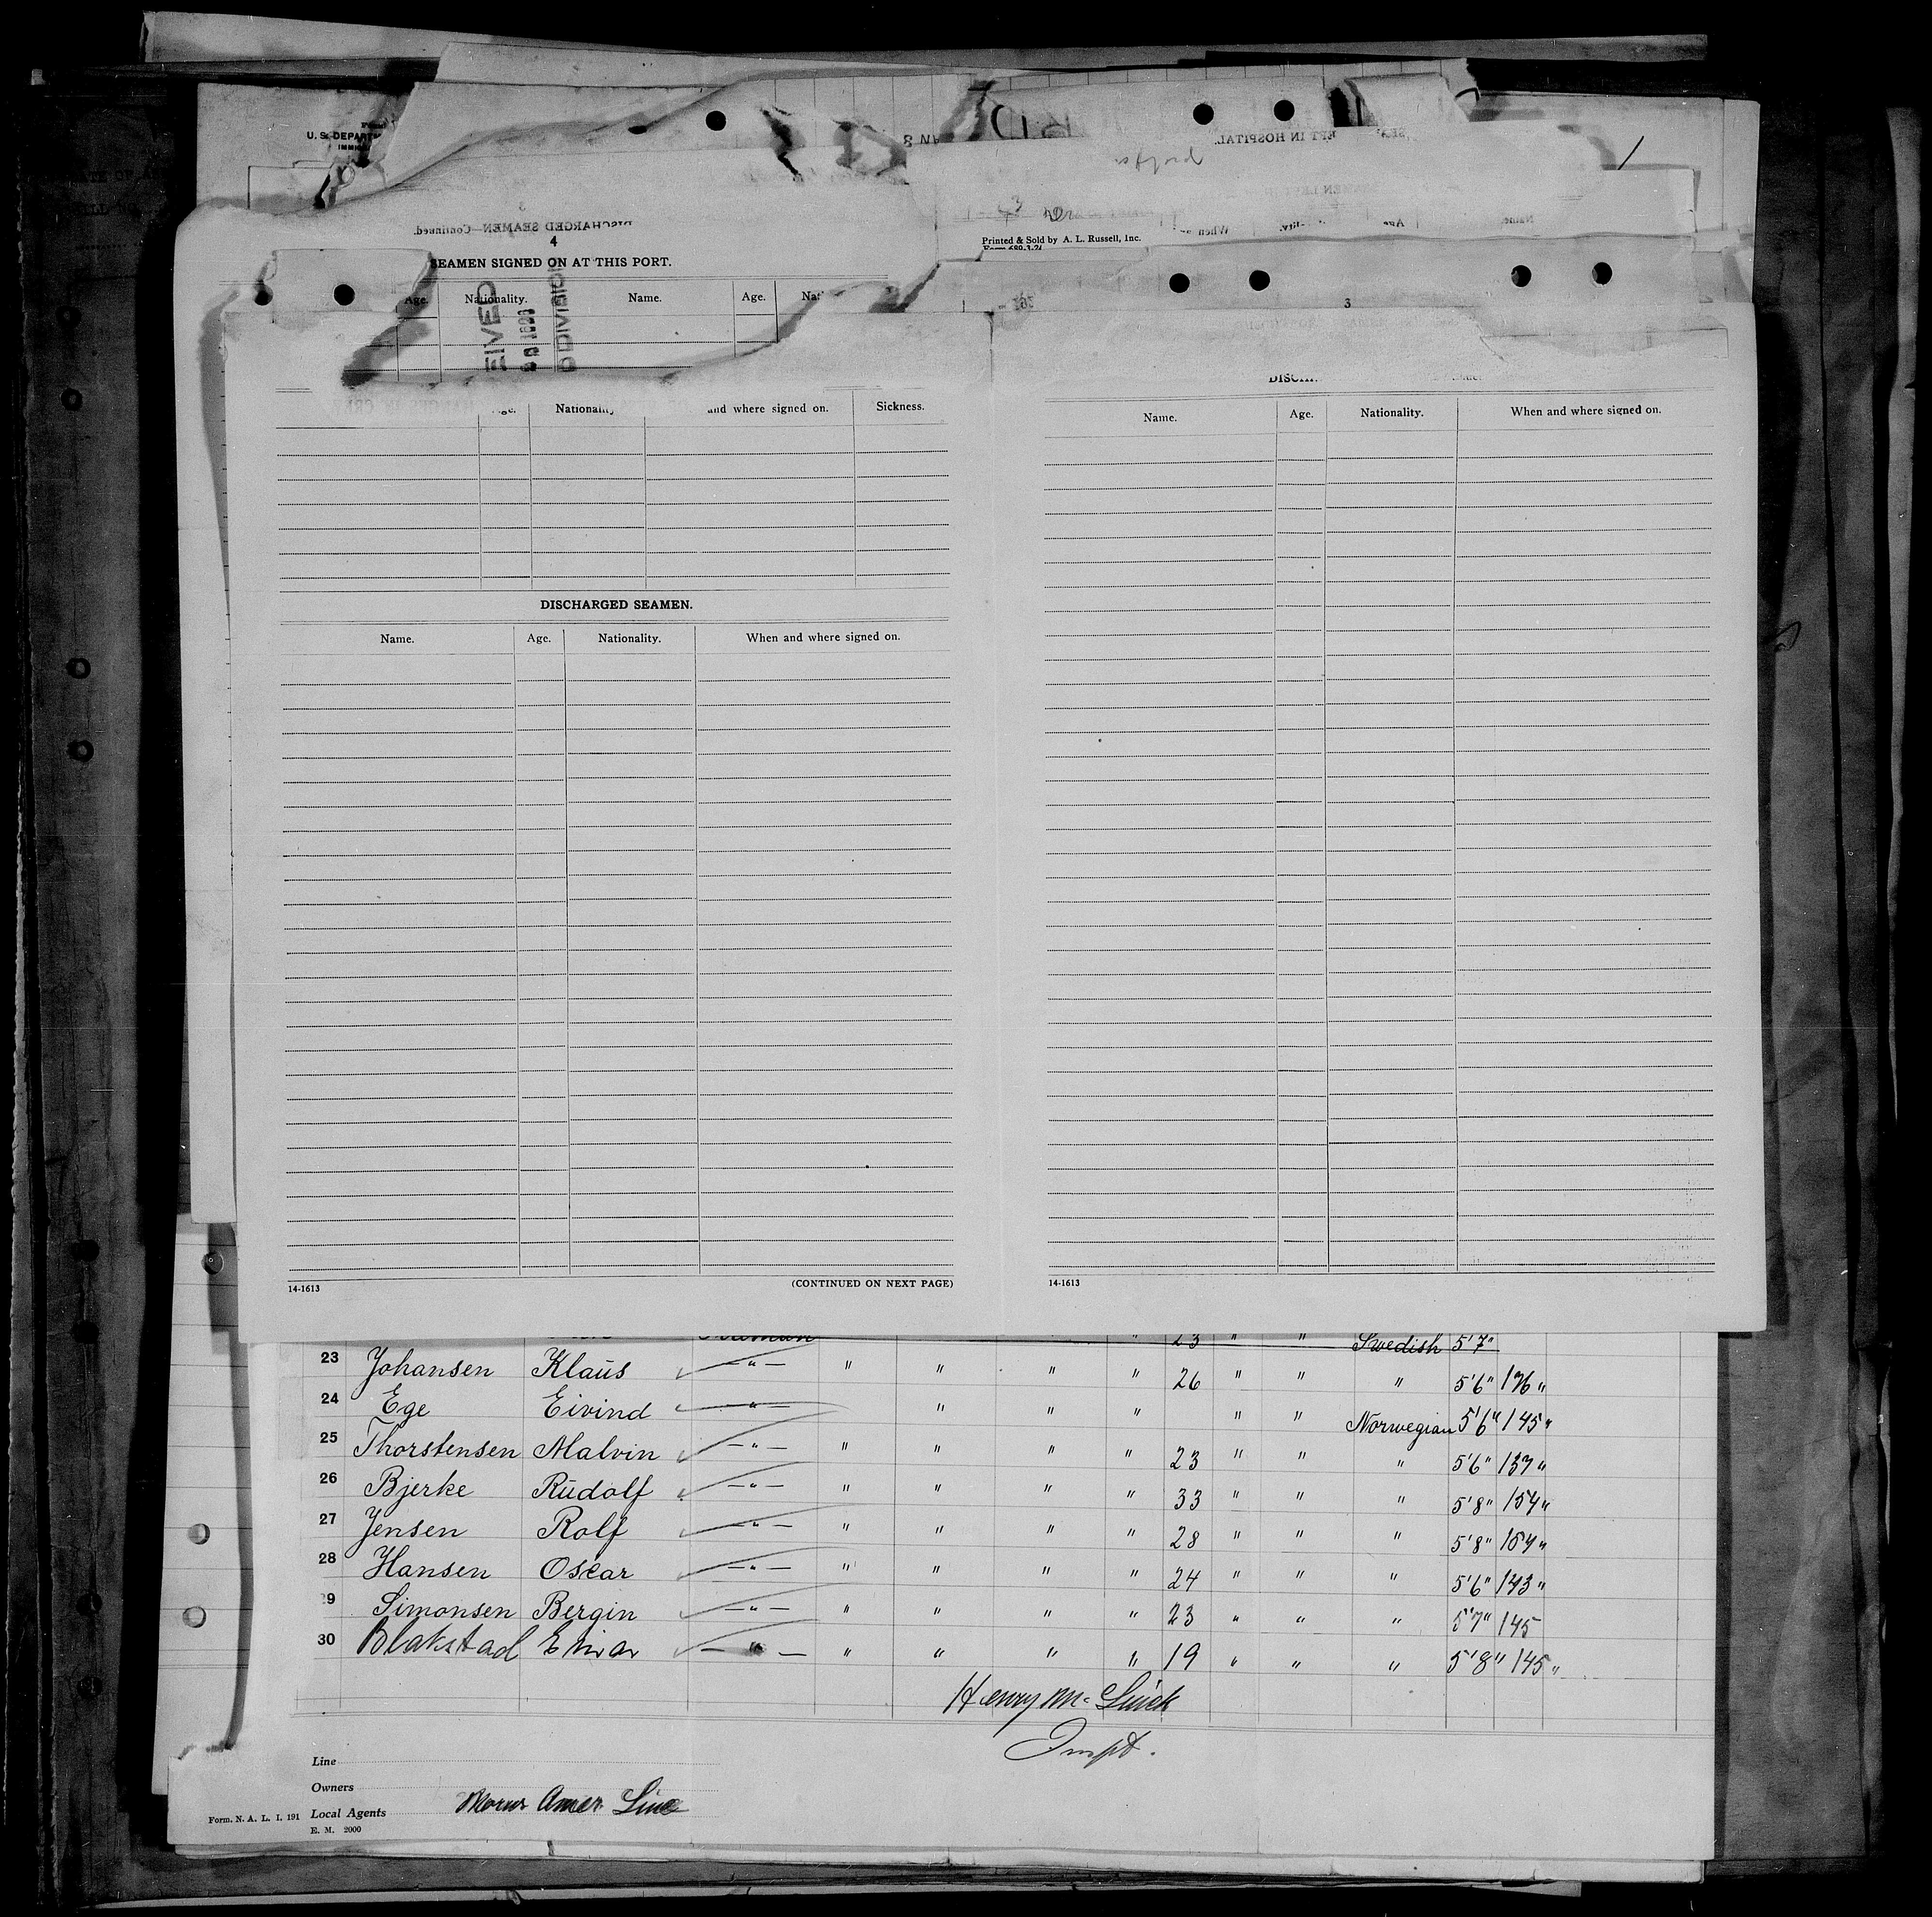 U. S. DEPART
DISCHARGED SEAMEN—Continued.
4
SEAMEN SIGNED ON AT THIS PORT.
Age. Nationality. Name. Age. Nat
EIVED
DIVISION
Printed & Sold by A. L. Russell, Inc.
3
Nationality and where signed on. Sickness.
DISCHARGED SEAMEN.
Name. Age. Nationality. When and where signed on.
14-1613 (CONTINUED ON NEXT PAGE)
Name. Age. Nationality. When and where signed on.
14-1613
23 " " Swedish 5'7"
23 Johansen Klaus —"— " " " " 26 " " " 5'6" 176 "
24 Ege Eivind —"— " " " " " Norwegian 5'6" 145 "
25 Thorstensen Malvin —"— " " " " 23 " " " 5'6" 137 "
26 Bjerke Rudolf —"— " " " " 33 " " " 5'8" 154 "
27 Jensen Rolf —"— " " " " 28 " " " 5'8" 154 "
28 Hansen Oscar —"— " " " " 24 " " " 5'6" 143 "
29 Simonsen Bergin —"— " " " " 23 " " " 5'7" 145
30 Blakstad Einar —"— " " " " 19 " " " 5'8" 145 "
Henry Mc
Inspt.
Line
Owners
Form. N. A. L. I. 191 Local Agents Norw Amer Line
E. M. 2000